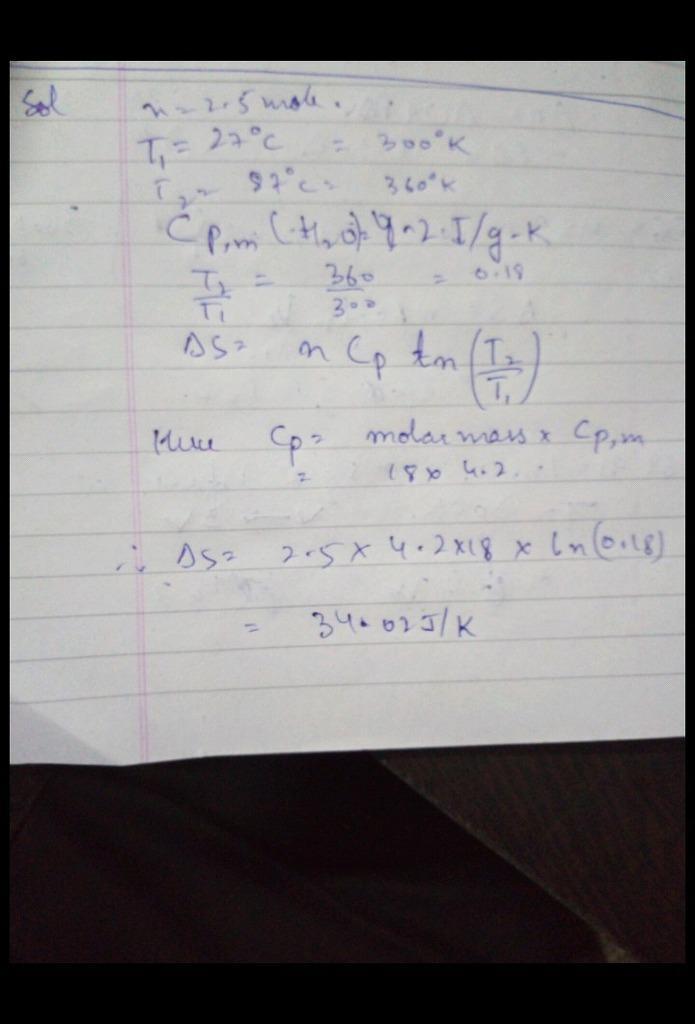 Sol n = 2.5 mole.
T₁ = 27°C = 300°K
T₂ = 87°C = 360°K
Cp,m (H₂O) = 4.2 J/g-K
T₂/T₁ = 360/300 = 0.18
ΔS = n Cp ln (T₂/T₁)
Here Cp = molar mass x Cp,m
= 18 x 4.2.
∴ ΔS = 2.5 x 4.2 x 18 x ln (0.18)
= 34.02 J/K